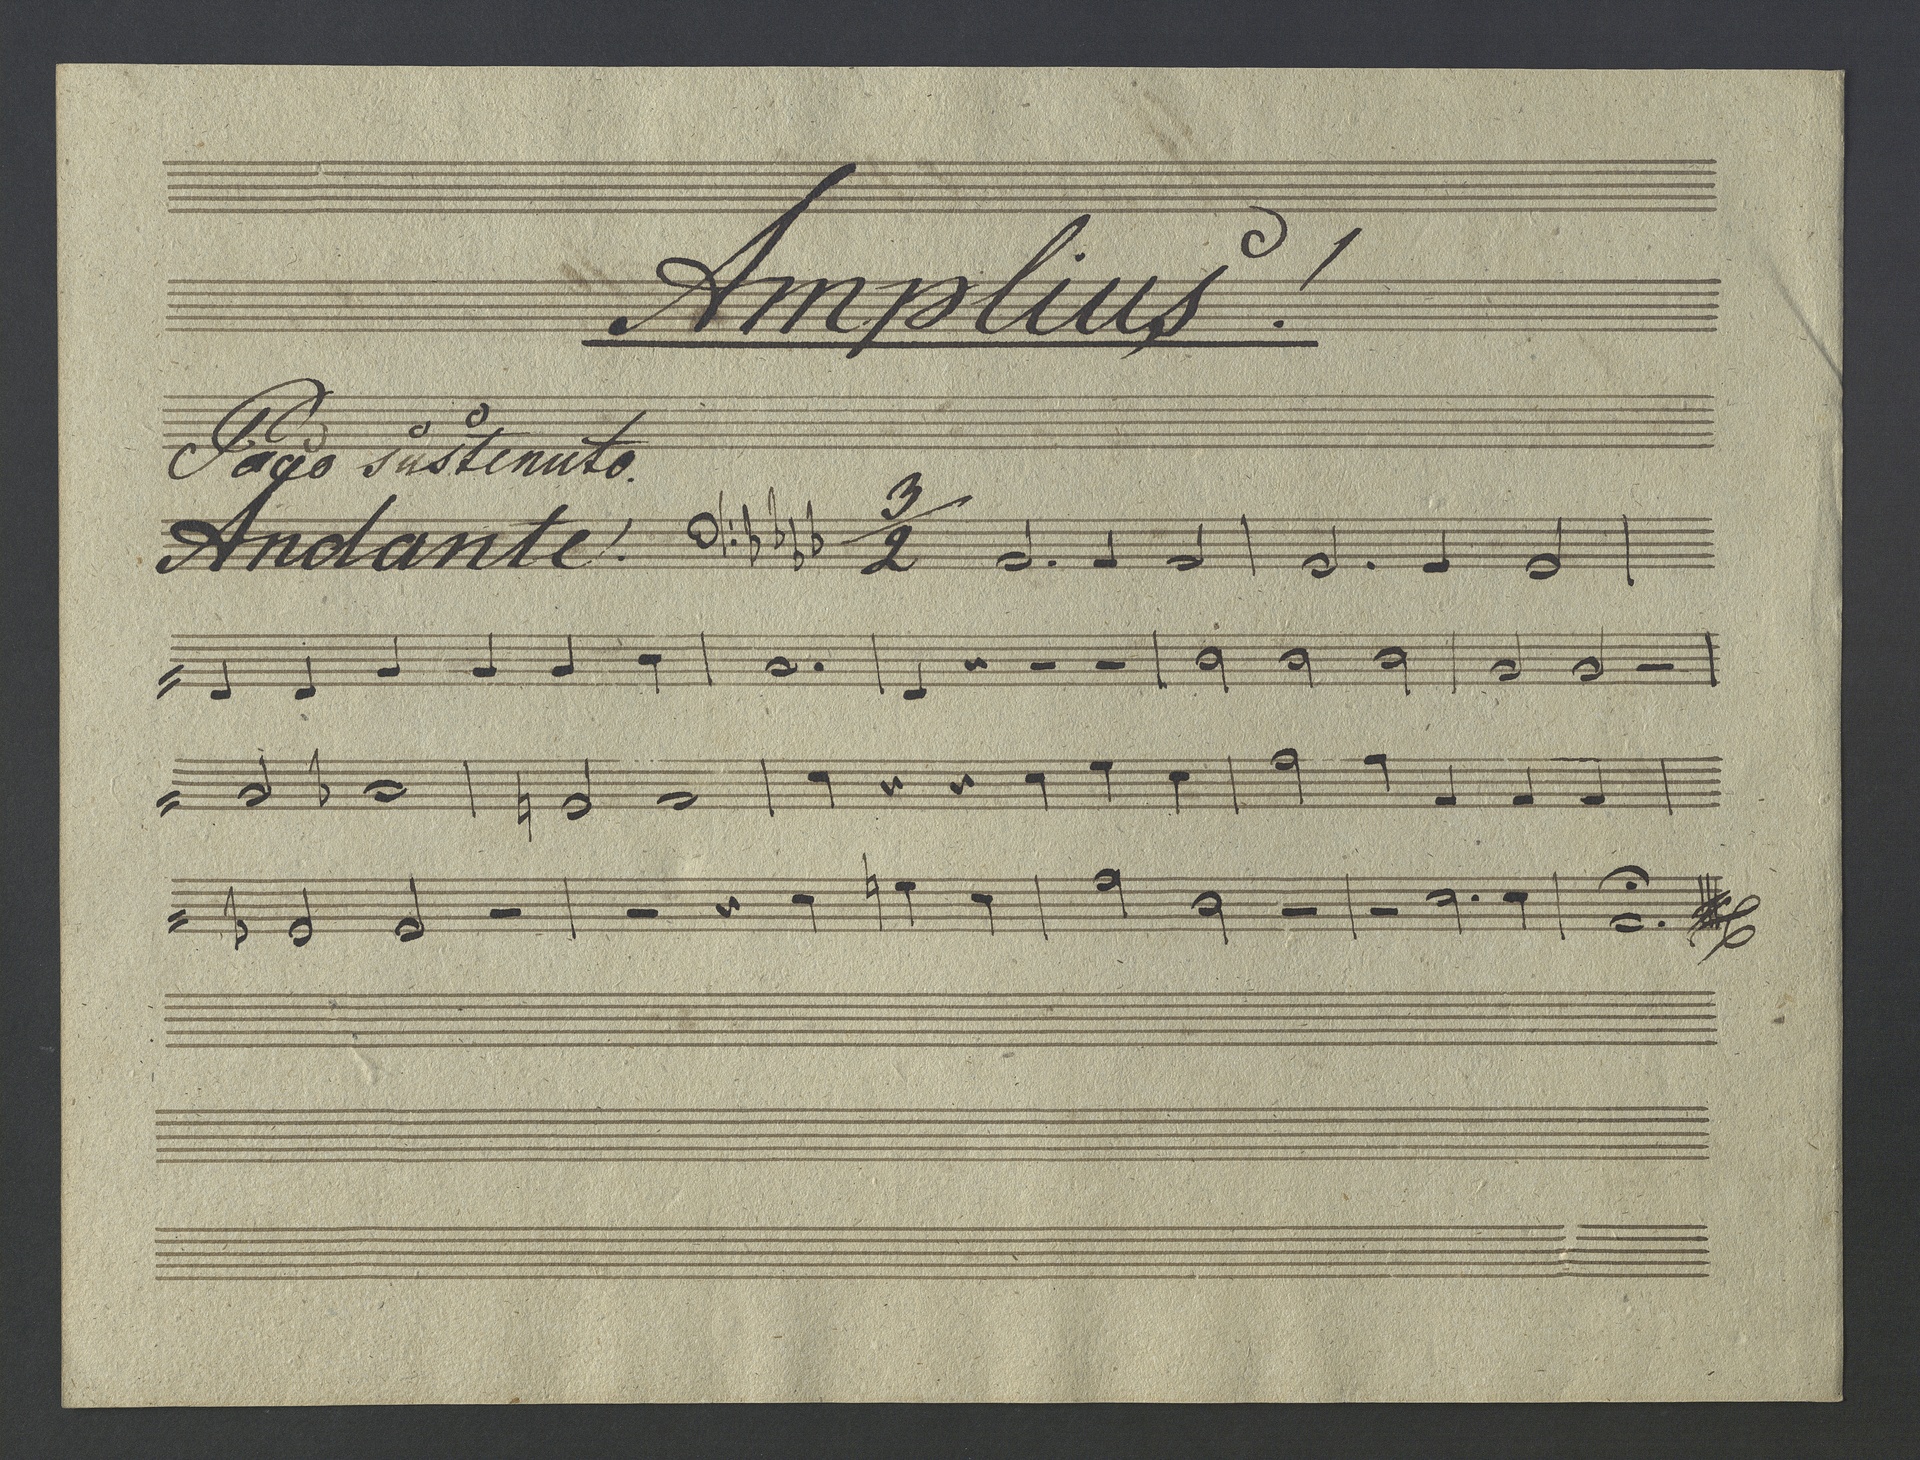 Amplius!
Pago sustenuto.
Andante!
3/2